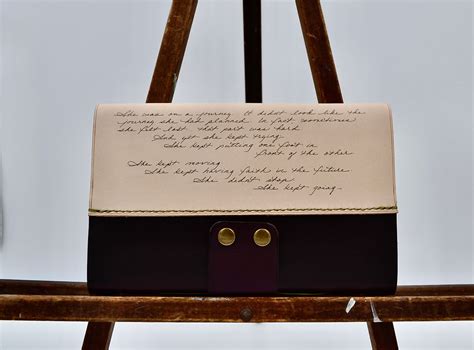 She was on a journey. It didnt look like the
journey she had planned. In fact sometimes
she felt lost. that part was hard
And yet she kept trying.
She kept putting one foot in
front of the other
She kept moving
She kept having faith in the future.
She didnt stop
She kept going.